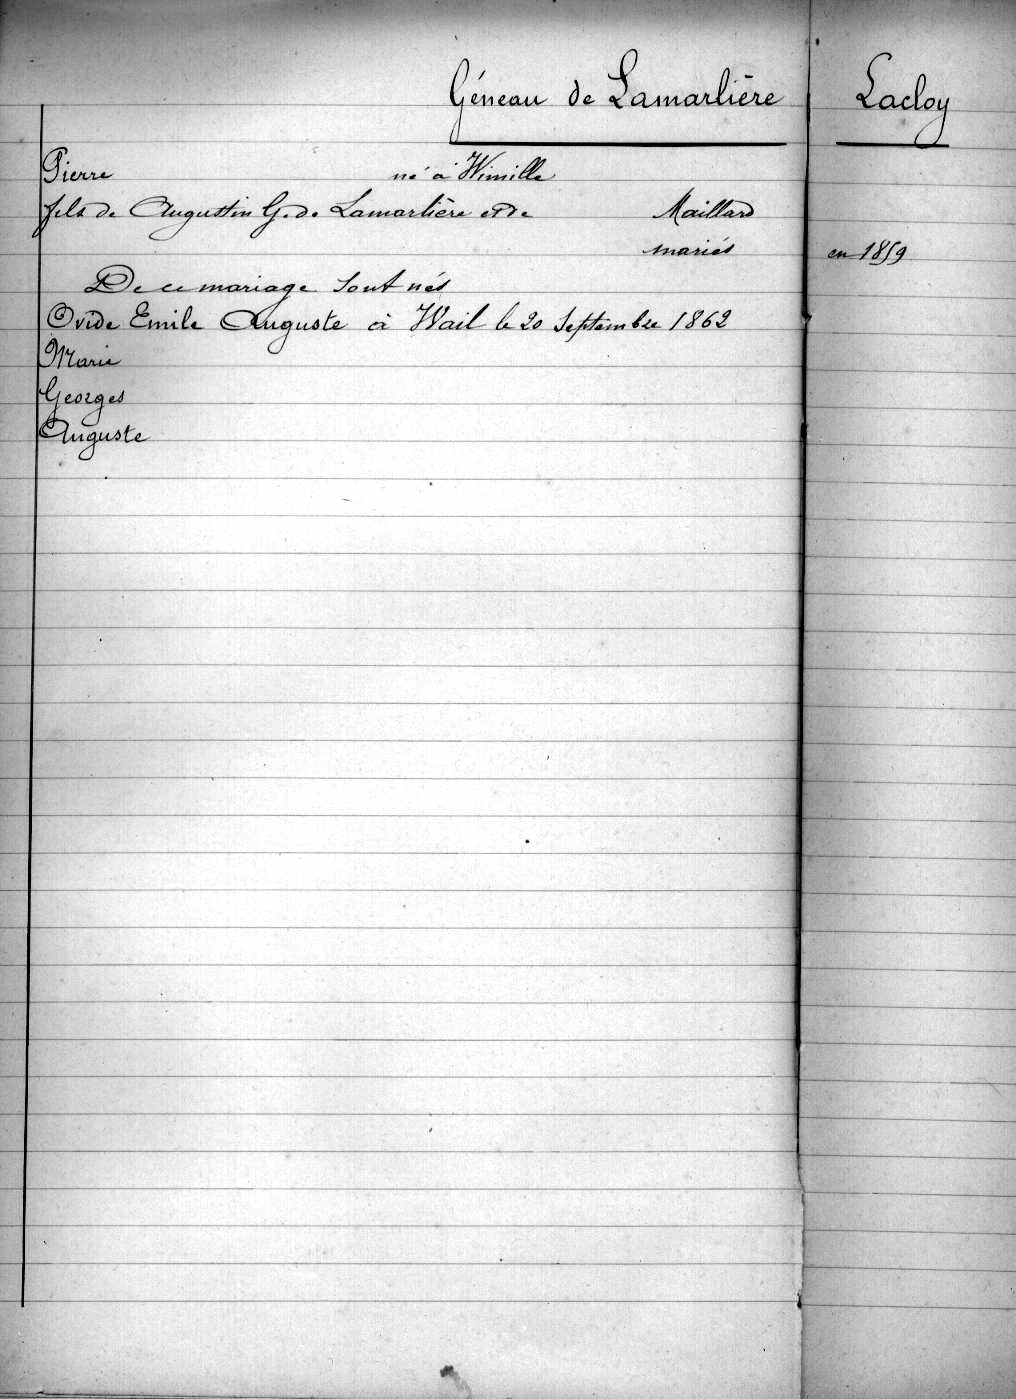 Géneau de Lamarlière Lacloy
Pierre né à Wimille
fils de Augustin G. de Lamarlière et de Maillard
mariés en 1859
De ce mariage sont nés
Ovide Emile Auguste à Wail le 20 Septembre 1862
Marie
Georges
Auguste